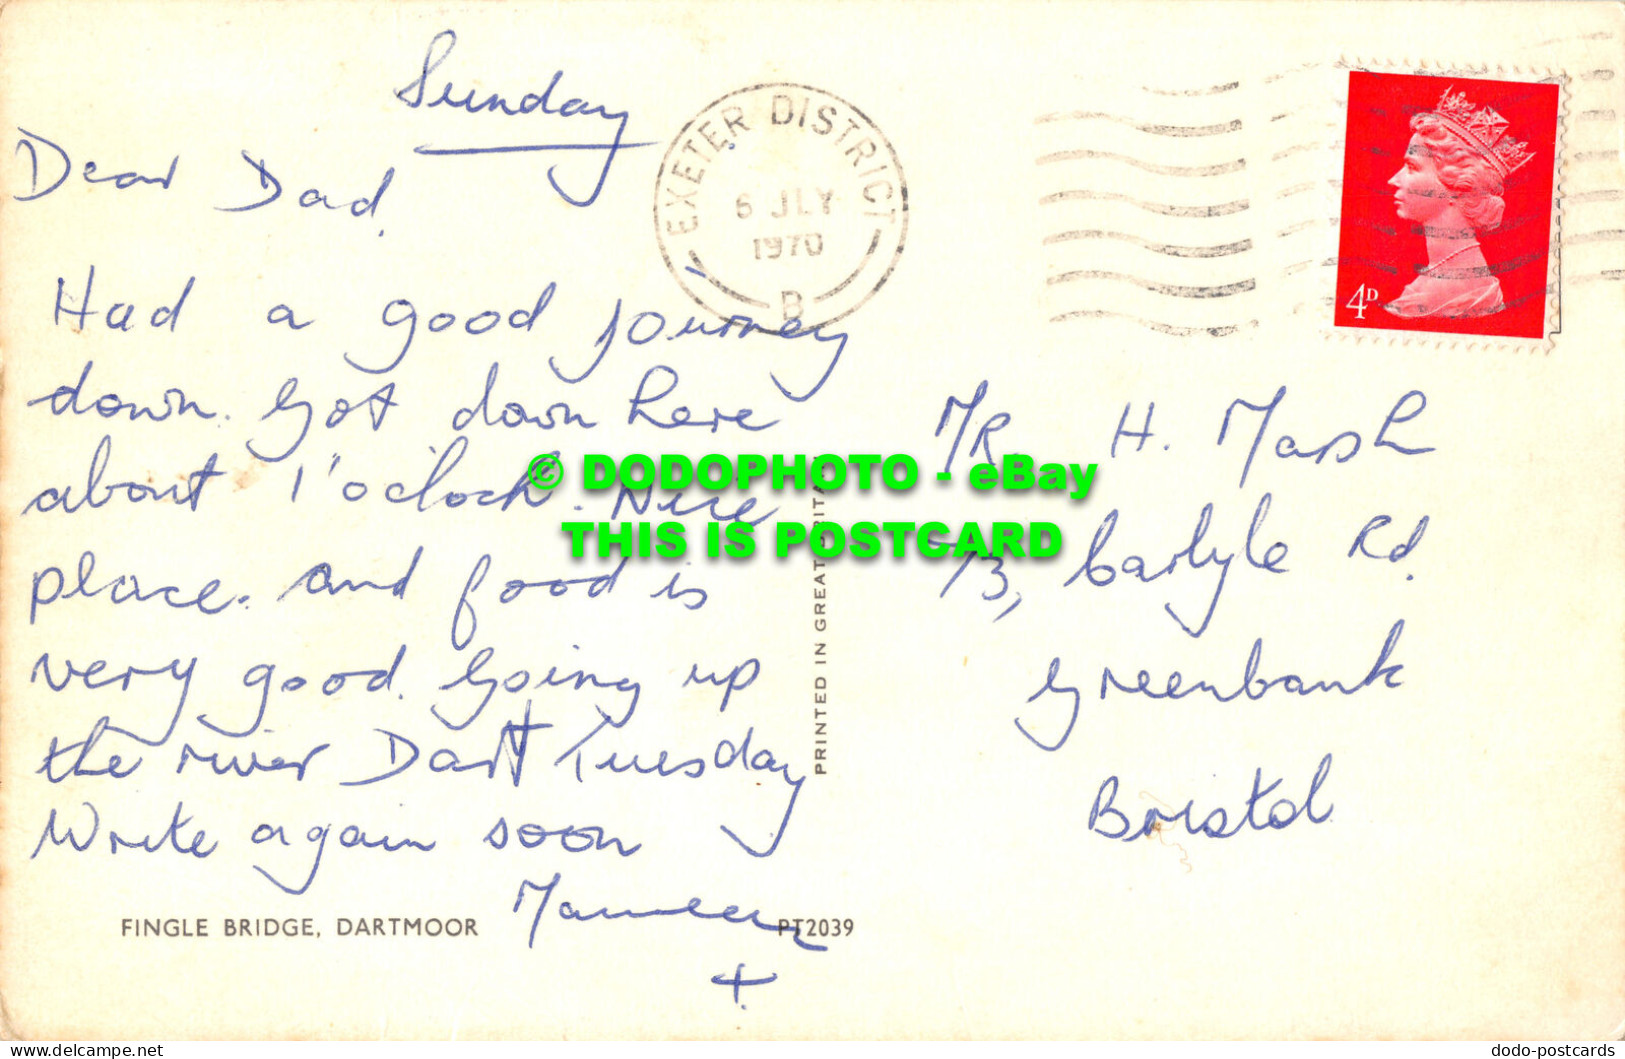 Sunday
Dear Dad.
Had a good journey
down. Got down here
about 1 o'clock. Nice
place. and food is
very good. Going up
the river Dart Tuesday
Write again soon
Maureen
+
FINGLE BRIDGE, DARTMOOR
PT2039
PRINTED IN GREAT BRITAIN
EXETER DISTRICT
6 JLY
1970
B
4D
MR H. Marsh
73, Carlyle Rd.
Greenbank
Bristol
© DODOPHOTO - eBay
THIS IS POSTCARD
Delcampe.net
dodo-postcards